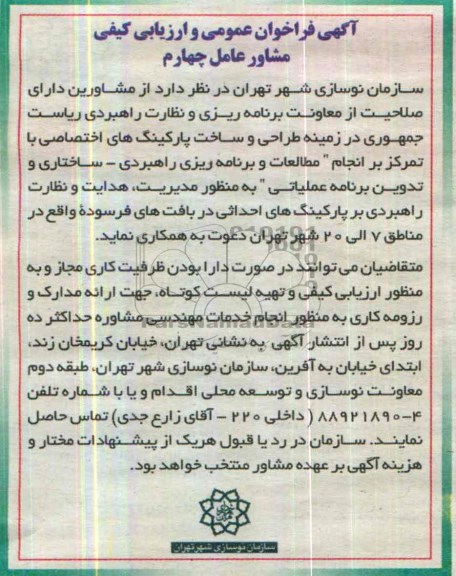 آگهی فراخوان عمومی و ارزیابی کیفی
مشاور عامل چهارم
سازمان نوسازی شهر تهران در نظر دارد از مشاورین دارای
صلاحیت از معاونت برنامه ریزی و نظارت راهبردی ریاست
جمهوری در زمینه طراحی و ساخت پارکینگ های اختصاصی با
تمرکز بر انجام " مطالعات و برنامه ریزی راهبردی - ساختاری و
تدوین برنامه عملیاتی " به منظور مدیریت، هدایت و نظارت
راهبردی بر پارکینگ های احداثی در بافت های فرسودۀ واقع در
مناطق ۷ الی ۲۰ شهر تهران دعوت به همکاری نماید.
متقاضیان می توانند در صورت دارا بودن ظرفیت کاری مجاز و به
منظور ارزیابی کیفی و تهیه لیست کوتاه، جهت ارائه مدارک و
رزومه کاری به منظور انجام خدمات مهندسی مشاوره حداکثر ده
روز پس از انتشار آگهی به نشانی تهران، خیابان کریمخان زند،
ابتدای خیابان به آفرین، سازمان نوسازی شهر تهران، طبقه دوم
معاونت نوسازی و توسعه محلی اقدام و یا با شماره تلفن
۴-۸۸۹۲۱۸۹۰ ( داخلی ۲۲۰ - آقای زارع جدی) تماس حاصل
نمایند. سازمان در رد یا قبول هریک از پیشنهادات مختار و
هزینه آگهی بر عهده مشاور منتخب خواهد بود.
سازمان نوسازی شهر تهران